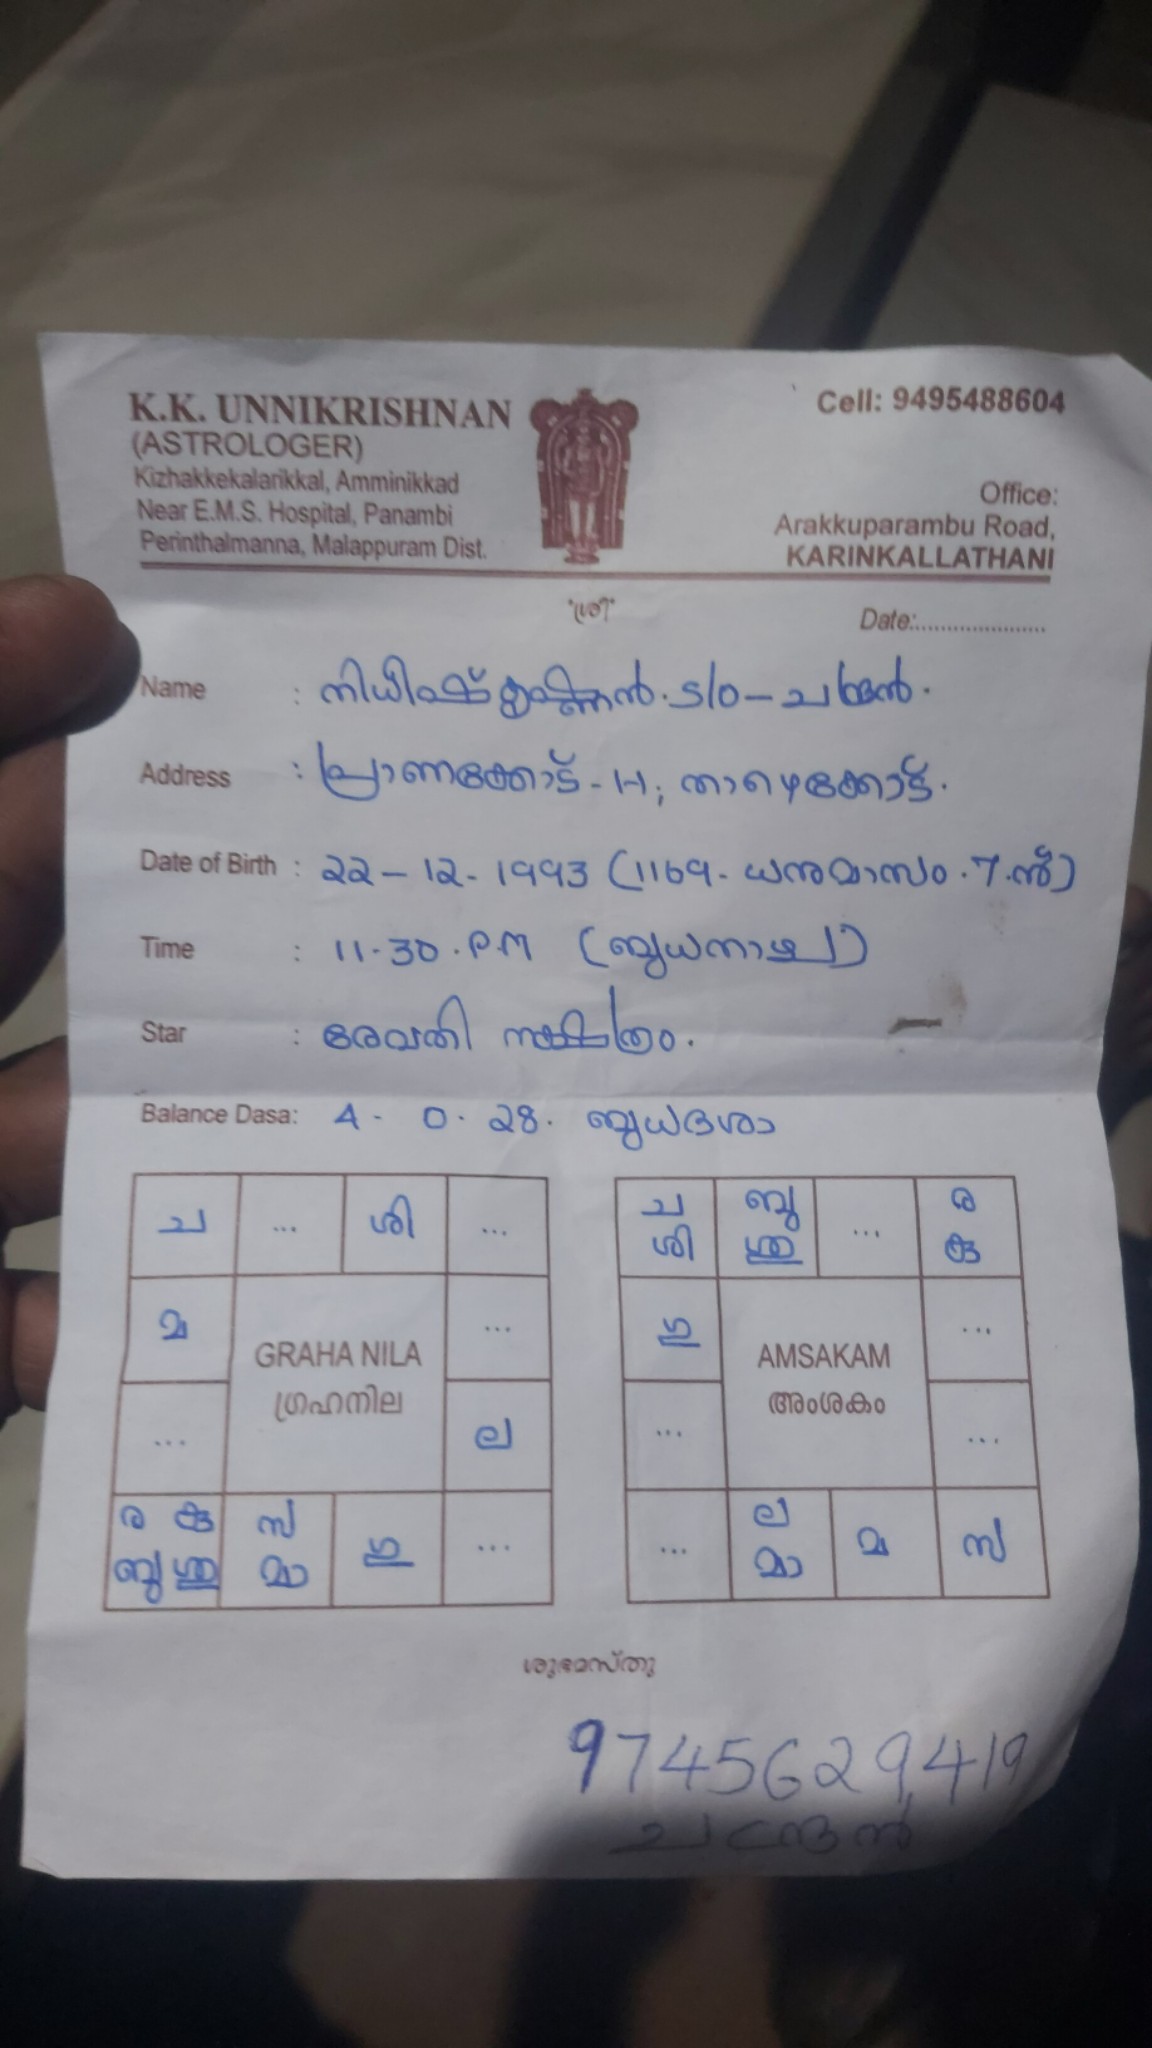 K.K. UNNIKRISHNAN
(ASTROLOGER)
Kizhakkekalarikkal, Amminikkad
Near E.M.S. Hospital, Panambi
Perinthalmanna, Malappuram Dist.
Cell: 9495488604
Office:
Arakkuparambu Road,
KARINKALLATHANI
"ശ്രീ"
Date:.....................
Name : നിധീഷ് കൃഷ്ണൻ. S/o - ചന്ദ്രൻ.
Address : പ്രാണക്കോട് - H, താഴെക്കോട്.
Date of Birth : 22 - 12 - 1993 (1169 - ധനുമാസം . 7 . ന്)
Time : 11-30 . P.M (ബുധനാഴ്ച)
Star : രേവതി നക്ഷത്രം.
Balance Dasa: 4 - 0 . 28 . ബുധദശാ
ച ... ശി ...
മ ...
GRAHA NILA
ഗ്രഹനില
... ല
ര കു സ ഗു ...
ബു ശു മാ
ച ബു ... ര
ശി ശു കു
ഗു ...
AMSAKAM
അംശകം
... ...
... ല മ സ
മാ
ശുഭമസ്തു
9745629419
ചന്ദ്രൻ